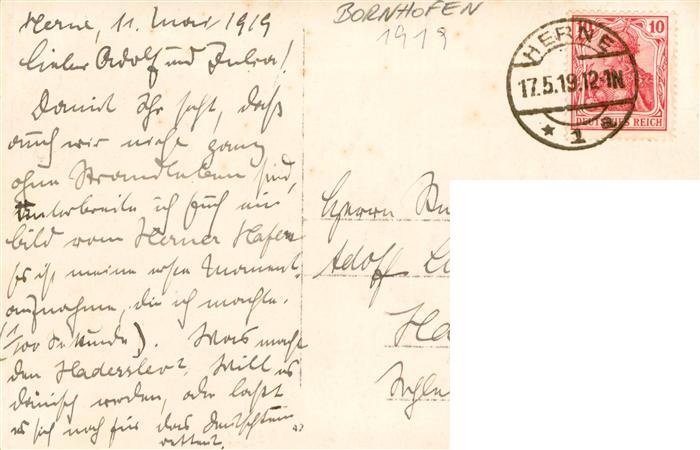 Herne, 11. Mai 1919
Lieber Adolf und Julia!
Damit Ihr seht, daß
auch wir nicht ganz
ohne Strandleben sind,
unterbreite ich Euch ein
Bild vom Herner Hafen
Es ist meine erste Moment-
aufnahme, die ich machte.
(1/100 Sekunde). Was macht
den Haderslev? Will es
dänisch werden, oder läßt
es sich noch für das Deutschtum
retten?
BORNHOFEN
1919
HERNE
17.5.19.12-1N
* 1 a
10
DEUTSCHES REICH
Herrn
Adolf
Ha
Schle